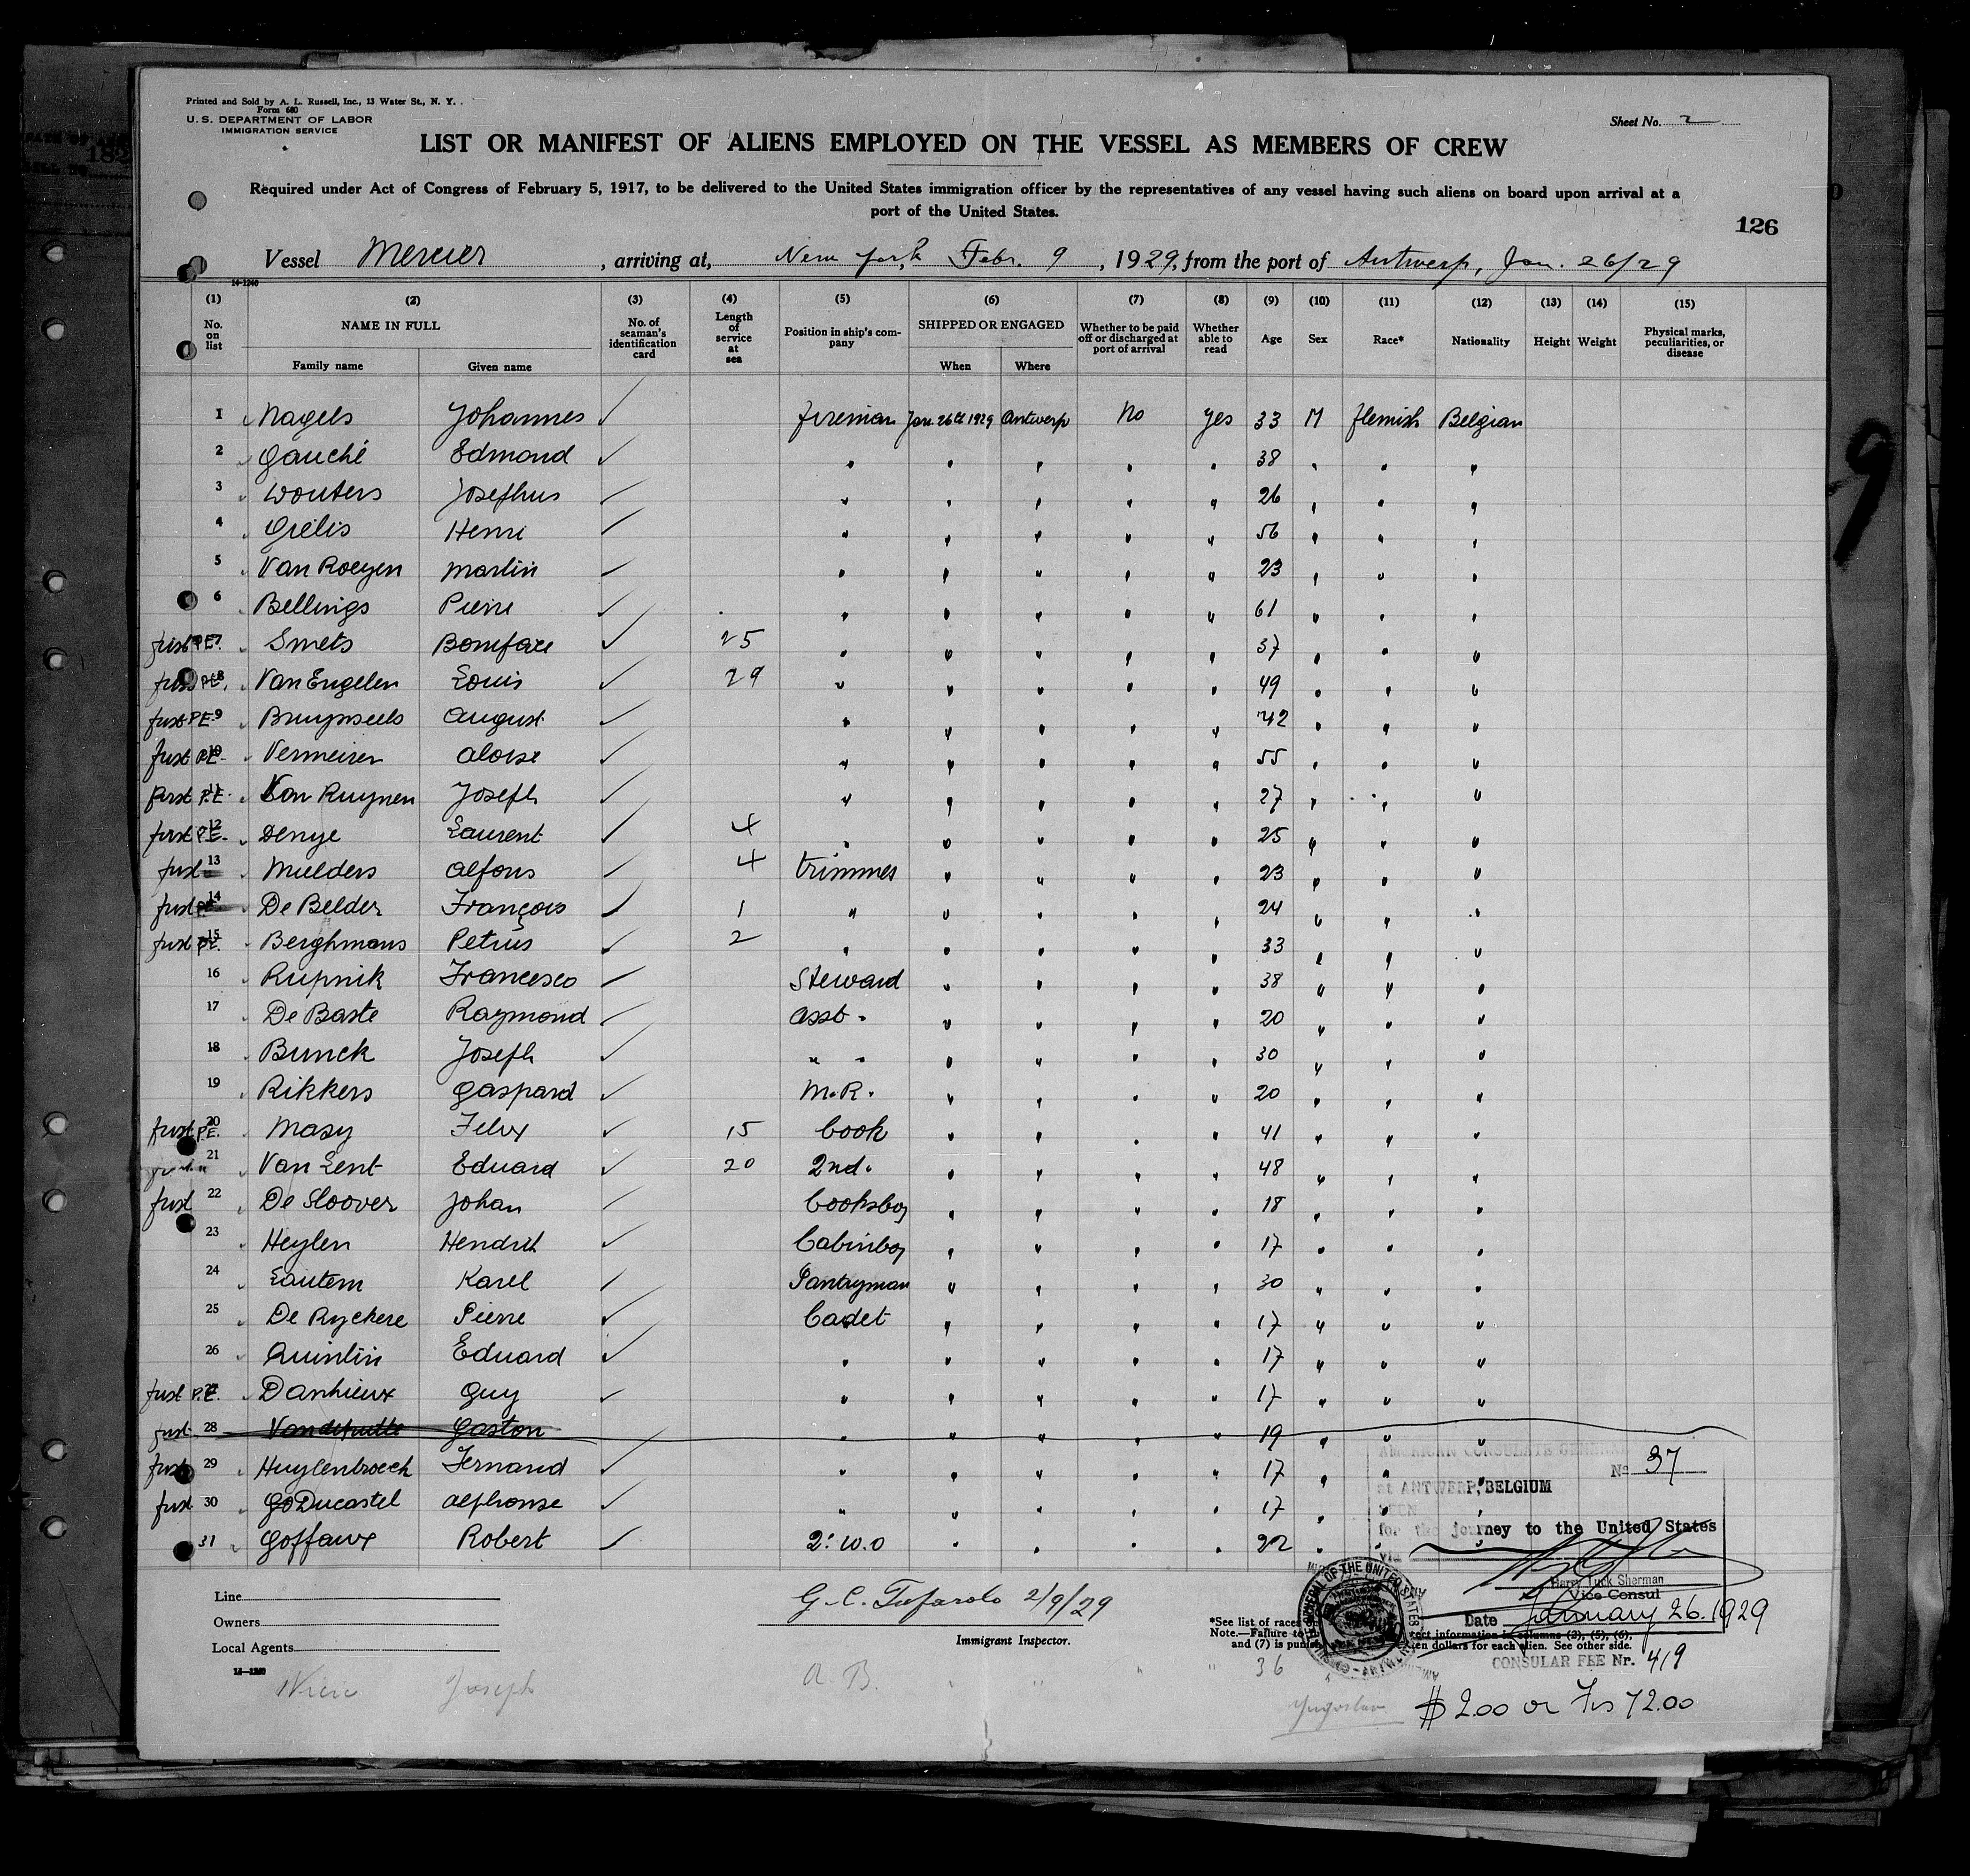 Printed and Sold by A. L. Russell, Inc., 13 Water St., N. Y.
Form 680
U. S. DEPARTMENT OF LABOR
IMMIGRATION SERVICE
Sheet No. 2
LIST OR MANIFEST OF ALIENS EMPLOYED ON THE VESSEL AS MEMBERS OF CREW
Required under Act of Congress of February 5, 1917, to be delivered to the United States immigration officer by the representatives of any vessel having such aliens on board upon arrival at a
port of the United States.
126
Vessel Mercier, arriving at, New York Febr. 9, 1929, from the port of Antwerp, Jan. 26/29
14-1240
(1) (2) (3) (4) (5) (6) (7) (8) (9) (10) (11) (12) (13) (14) (15)
No. on list NAME IN FULL Family name Given name No. of seaman's identification card Length of service at sea Position in ship's company SHIPPED OR ENGAGED When Where Whether to be paid off or discharged at port of arrival Whether able to read Age Sex Race* Nationality Height Weight Physical marks, peculiarities, or disease
1 Nagels Johannes ✓ fireman Jan. 26th 1929 Antwerp No yes 33 M flemish Belgian
2 Gauché Edmond ✓ " " " " " 38 " " "
3 Wouters Josephus ✓ " " " " " 26 " " "
4 Grélis Henri ✓ " " " " " 56 " " "
5 Van Roeyen Martin ✓ " " " " " 23 " " "
6 Bellings Pierre ✓ " " " " " 61 " " "
first P.E. 7 Smets Boniface ✓ 25 " " " " " 37 " " "
first P.E. 8 Van Engelen Louis ✓ 29 " " " " " 49 " " "
first P.E. 9 Bruynseels August ✓ " " " " " 42 " " "
first P.E. 10 Vermeiren Aloise ✓ " " " " " 55 " " "
first P.E. 11 Van Ruynen Joseph ✓ " " " " " 27 " " "
first P.E. 12 Denye Laurent ✓ 4 " " " " " 25 " " "
first 13 Mulders Alfons ✓ 4 trimmer " " " " 23 " " "
first P.E. 14 De Belder François ✓ 1 " " " " " 24 " " "
first P.E. 15 Berghmans Petrus ✓ 2 " " " " " 33 " " "
16 Rupnik Francesco ✓ Steward " " " " 38 " " "
17 De Baste Raymond ✓ Asst. " " " " 20 " " "
18 Bunck Joseph ✓ " " " " " " 30 " " "
19 Rikkers Gaspard ✓ M.R. " " " " 20 " " "
first P.E. 20 Masy Felix ✓ 15 Cook " " " " 41 " " "
21 Van Lent Eduard ✓ 20 2nd. " " " " 48 " " "
first 22 De Sloover Johan ✓ Cooksboy " " " " 18 " " "
23 Heylen Hendrik ✓ Cabinboy " " " " 17 " " "
24 Lautem Karel ✓ Pantryman " " " " 30 " " "
25 De Ryckere Pierre ✓ Cadet " " " " 17 " " "
26 Quintin Eduard ✓ " " " " " 17 " " "
first P.E. 27 Danhieux Guy ✓ " " " " " 17 " " "
first 28 Vandeputte Gaston " " " " " 19 " " "
first 29 Huylenbroeck Fernand ✓ " " " " " 17 " " "
first 30 Ducastel Alphonse ✓ " " " " " 17 " " "
31 Goffaux Robert ✓ 2: W.O " " " " 22 " " "
9
AMERICAN CONSULATE GENERAL
No 37
at ANTWERP, BELGIUM
SEEN
for the journey to the United States
via
Harry Tuck Sherman
Vice Consul
Date January 26. 1929
CONSULAR FEE Nr. 419
$ 2.00 or Frs 72.00
Line
Owners
Local Agents
14-1240
G. C. Tufarolo 2/9/29
Immigrant Inspector.
*See list of races
Note.—Failure to
rect information in columns (2), (5), (6),
and (7) is punish
ten dollars for each alien. See other side.
Joseph A. B. " " " " 36 " Yugoslav